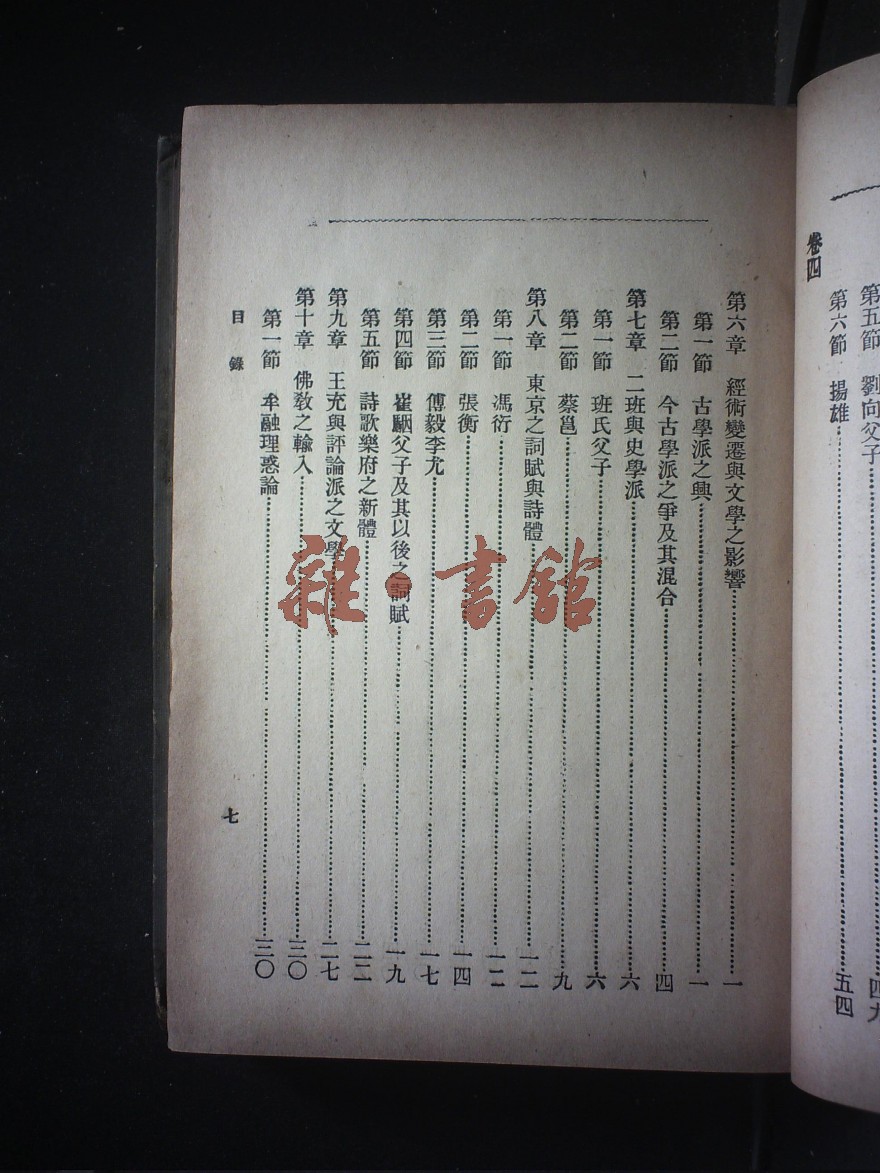 第五節　劉向父子……四九
第六節　揚雄……五四
卷四
第六章　經術變遷與文學之影響……一
第一節　古學派之興……一
第二節　今古學派之爭及其混合……四
第七章　二班與史學派……六
第一節　班氏父子……六
第二節　蔡邕……九
第八章　東京之詞賦與詩體……一二
第一節　馮衍……一二
第二節　張衡……一四
第三節　傅毅李尤……一七
第四節　崔駰父子及其以後之詞賦……一九
第五節　詩歌樂府之新體……二二
第九章　王充與評論派之文學……二七
第十章　佛敎之輸入……三〇
第一節　牟融理惑論……三〇
目錄
七
雜·書館